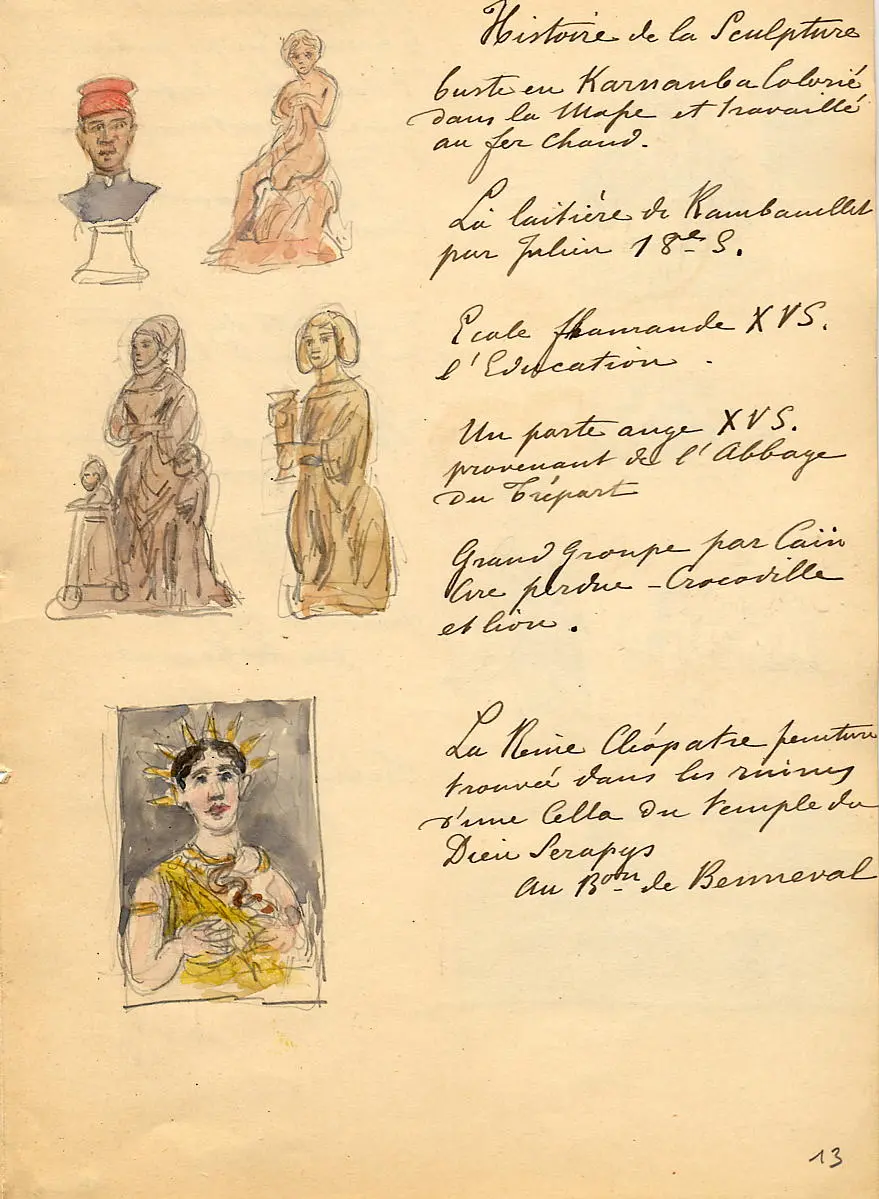 Histoire de la Sculpture
buste en Karnauba Colorié
dans la Masse et travaillé
au fer chaud.
La laitière de Rambouillet
par Julien 18e S.
Ecole flamande XVS.
l'Education .
Un porte ange XVS.
provenant de l'Abbaye
du Tréport
Grand Groupe par Caïn
Cire perdue - Crocodille
et lion .
La Reine Cléopatre peinture
trouvée dans les ruines
d'une Cella du temple du
Dieu Serapys
au Bon de Benneval
13